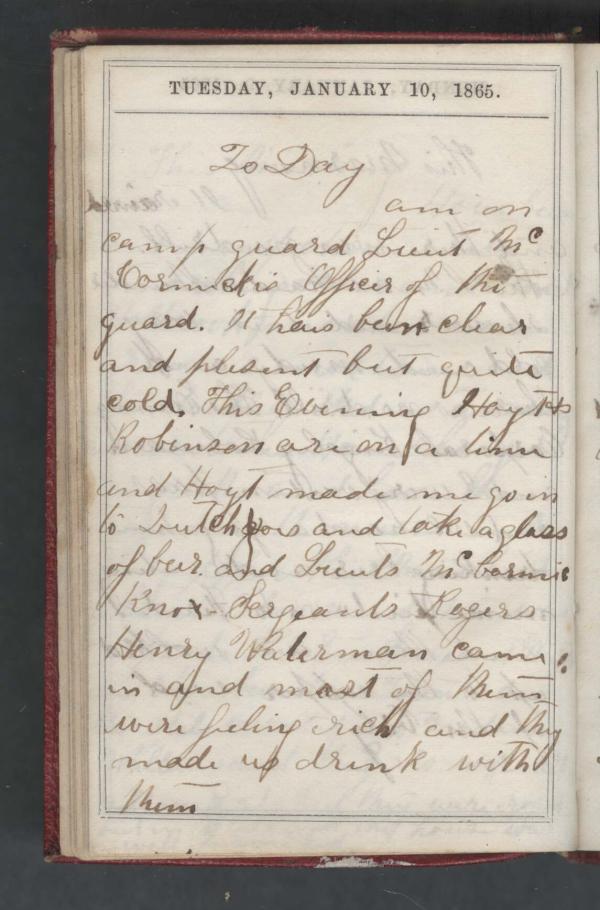 TUESDAY, JANUARY 10, 1865.
To Day
am on
camp guard Lieut Mc
Cormick is Officer of the
guard. It has been clear
and plesent but quite
cold. This Evening Hoyt &
Robinson are on a time
and Hoyt made me go in
to and take a glass
of beer. and Lieuts McCormic
Knox - Sergeants Rogers
Henry Waterman came
in and most of them
were feeling rich and they
made us drink with
them